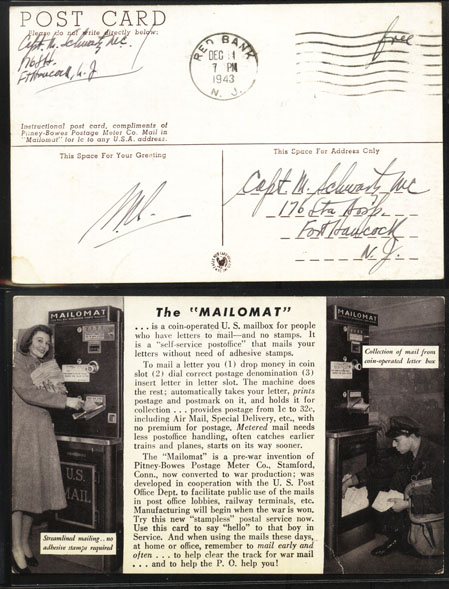 POST CARD
Please do not write directly below:
Capt. M. Schwartz, MC.
176 St. H.
Ft Hancock, N. J.
RED BANK
DEC 11
7 PM
1943
N. J.
free
Instructional post card, compliments of
Pitney-Bowes Postage Meter Co. Mail in
"Mailomat" for 1c to any U.S.A. address.
This Space For Your Greeting
This Space For Address Only
Capt. M. Schwartz, MC
176 Sta Hosp.
Fort Hancock
N. J.
MAILOMAT
U.S.
MAIL
Streamlined mailing...no
adhesive stamps required
The "MAILOMAT"
. . . is a coin-operated U. S. mailbox for people
who have letters to mail—and no stamps. It
is a "self-service postoffice" that mails your
letters without need of adhesive stamps.
To mail a letter you (1) drop money in coin
slot (2) dial correct postage denomination (3)
insert letter in letter slot. The machine does
the rest; automatically takes your letter, prints
postage and postmark on it, and holds it for
collection . . . provides postage from 1c to 32c,
including Air Mail, Special Delivery, etc., with
no premium for postage. Metered mail needs
less postoffice handling, often catches earlier
trains and planes, starts on its way sooner.
The "Mailomat" is a pre-war invention of
Pitney-Bowes Postage Meter Co., Stamford,
Conn., now converted to war production; was
developed in cooperation with the U. S. Post
Office Dept. to facilitate public use of the mails
in post office lobbies, railway terminals, etc.
Manufacturing will begin when the war is won.
Try this new "stampless" postal service now.
Use this card to say "hello" to that boy in
Service. And when using the mails these days,
at home or office, remember to mail early and
often . . . to help clear the track for war mail
. . . and to help the P. O. help you!
MAILOMAT
Collection of mail from
coin-operated letter box